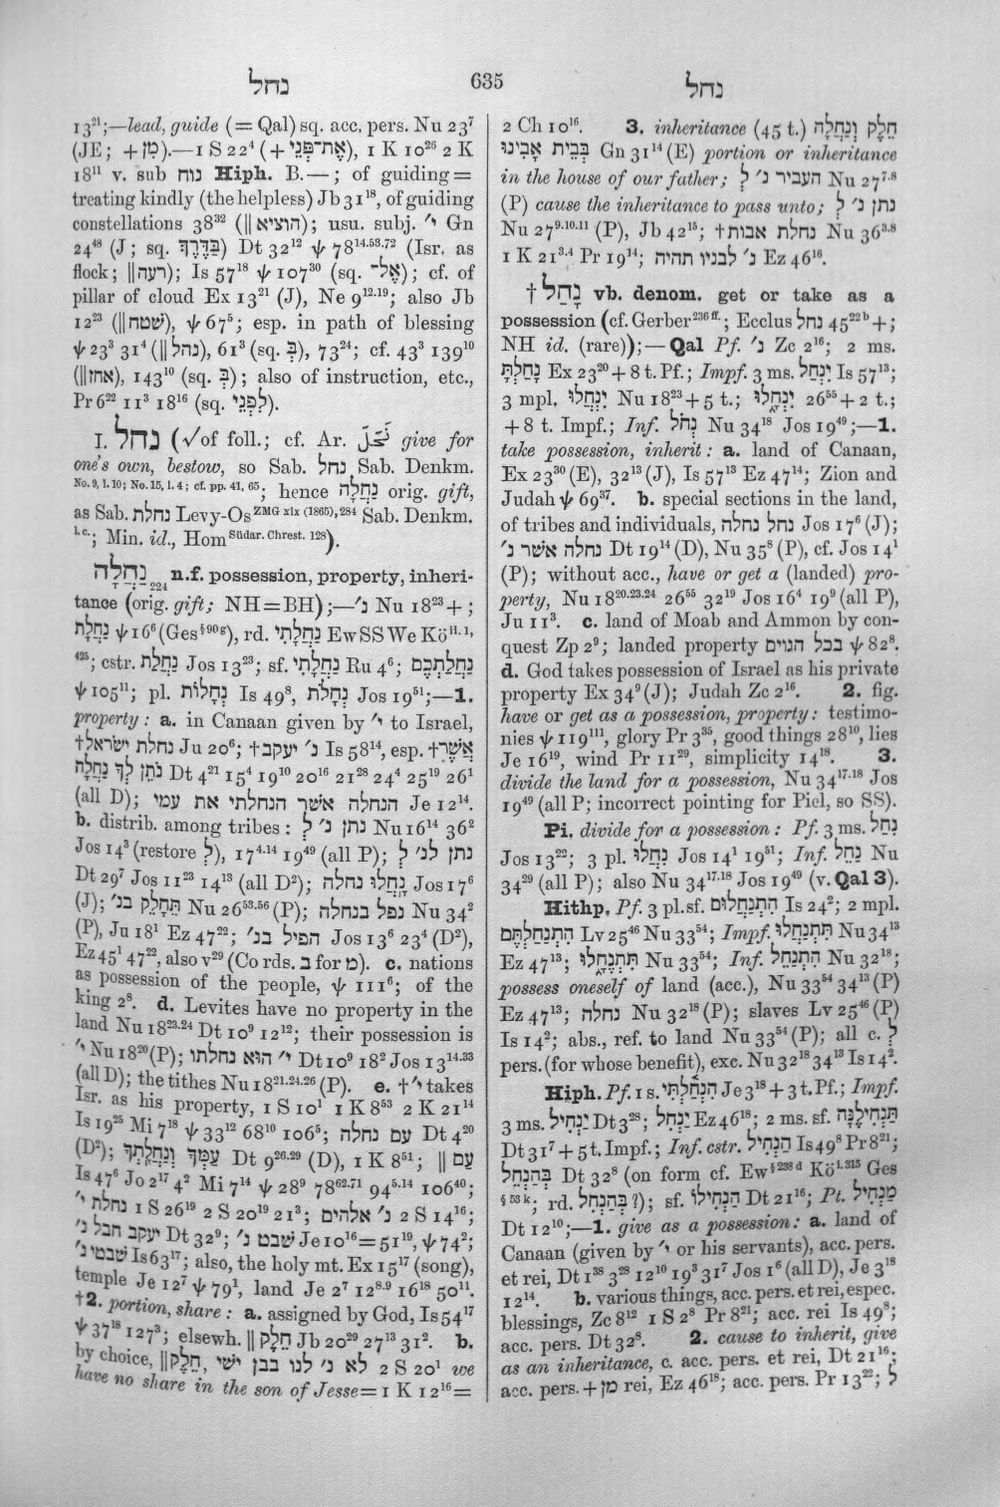 נחל
635
נחל
13²¹;—lead, guide (= Qal) sq. acc. pers. Nu 23⁷
(JE; + מִן).—1 S 22⁴ (+ אֶת־פְּנֵי), 1 K 10²⁶ 2 K
18¹¹ v. sub נוח Hiph. B.—; of guiding =
treating kindly (the helpless) Jb 31¹⁸, of guiding
constellations 38³² (‖ הוציא); usu. subj. י׳ Gn
24⁴⁸ (J; sq. בַּדֶּרֶךְ) Dt 32¹² ψ 78¹⁴·⁵³·⁷² (Isr. as
flock; ‖ רעה); Is 57¹⁸ ψ 107³⁰ (sq. אֶל־); cf. of
pillar of cloud Ex 13²¹ (J), Ne 9¹²·¹⁹; also Jb
12²³ (‖ שטח), ψ 67⁵; esp. in path of blessing
ψ 23³ 31⁴ (‖ נהל), 61³ (sq. בְּ), 73²⁴; cf. 43³ 139¹⁰
(‖ אחז), 143¹⁰ (sq. בְּ); also of instruction, etc.,
Pr 6²² 11³ 18¹⁶ (sq. לִפְנֵי).
I. נחל (√of foll.; cf. Ar. نَحَلَ give for
one's own, bestow, so Sab. נחל Sab. Denkm.
No. 9, l. 10; No. 15, l. 4; cf. pp. 41, 65; hence נַחֲלָה orig. gift,
as Sab. נחלת Levy-Os ZMG xix (1865), 284 Sab. Denkm.
l.c.; Min. id., Hom Südar. Chrest. 128).
נַחֲלָה 224 n.f. possession, property, inheri-
tance (orig. gift; NH=BH);—נ׳ Nu 18²³ + ;
נַחֲלָת ψ 16⁶ (Ges § 90 g), rd. נַחֲלָתִי Ew SS We Kö ii. 1,
425; cstr. נַחֲלַת Jos 13²³; sf. נַחֲלָתִי Ru 4⁶; נַחֲלַתְכֶם
ψ 105¹¹; pl. נְחָלוֹת Is 49⁸, נְחָלֹת Jos 19⁵¹;—1.
property: a. in Canaan given by י׳ to Israel,
†נחלת ישראל Ju 20⁶; †נ׳ יעקב Is 58¹⁴, esp. †אֲשֶׁר
נֹתֵן לְךָ נַחֲלָה Dt 4²¹ 15⁴ 19¹⁰ 20¹⁶ 21²³ 24⁴ 25¹⁹ 26¹
(all D); הנחלה אשר הנחלתי את עמי Je 12¹⁴.
b. distrib. among tribes: נתן נ׳ לְ Nu 16¹⁴ 36²
Jos 14³ (restore לְ), 17⁴·¹⁴ 19⁴⁹ (all P); נתן לנ׳ לְ
Dt 29⁷ Jos 11²³ 14¹³ (all D²); נָחֲלוּ נחלה Jos 17⁶
(J); תֵּחָלֵק בנ׳ Nu 26⁵³·⁵⁶ (P); נפל בנחלה Nu 34²
(P), Ju 18¹ Ez 47²²; הפיל בנ׳ Jos 13⁶ 23⁴ (D²),
Ez 45¹ 47²², also v²⁹ (Co rds. ב for מ). c. nations
as possession of the people, ψ 111⁶; of the
king 2⁸. d. Levites have no property in the
land Nu 18²³·²⁴ Dt 10⁹ 12¹²; their possession is
י׳ Nu 18²⁰ (P); י׳ הוא נחלתו Dt 10⁹ 18² Jos 13¹⁴·³³
(all D); the tithes Nu 18²¹·²⁴·²⁶ (P). e. †י׳ takes
Isr. as his property, 1 S 10¹ 1 K 8⁵³ 2 K 21¹⁴
Is 19²⁵ Mi 7¹⁸ ψ 33¹² 68¹⁰ 106⁵; עם נחלה Dt 4²⁰
(D²); עַמְּךָ וְנַחֲלָתְךָ Dt 9²⁶·²⁹ (D), 1 K 8⁵¹; ‖ עַם
Is 47⁶ Jo 2¹⁷ 4² Mi 7¹⁴ ψ 28⁹ 78⁶²·⁷¹ 94⁵·¹⁴ 106⁴⁰;
נחלת י׳ 1 S 26¹⁹ 2 S 20¹⁹ 21³; נ׳ אלהים 2 S 14¹⁶;
יעקב חבל נ׳ Dt 32⁹; שבט נ׳ Je 10¹⁶=51¹⁹, ψ 74²;
שבטי נ׳ Is 63¹⁷; also, the holy mt. Ex 15¹⁷ (song),
temple Je 12⁷ ψ 79¹, land Je 2⁷ 12⁸·⁹ 16¹⁸ 50¹¹.
†2. portion, share: a. assigned by God, Is 54¹⁷
ψ 37¹⁸ 127³; elsewh. ‖ חֵלֶק Jb 20²⁹ 27¹³ 31². b.
by choice, ‖ חֵלֶק, לא נ׳ לנו בבן ישי 2 S 20¹ we
have no share in the son of Jesse=1 K 12¹⁶=
2 Ch 10¹⁶. 3. inheritance (45 t.) חֵלֶק וְנַחֲלָה
בְּבֵית אָבִינוּ Gn 31¹⁴ (E) portion or inheritance
in the house of our father; העביר נ׳ לְ Nu 27⁷·⁸
(P) cause the inheritance to pass unto; נתן נ׳ לְ
Nu 27⁹·¹⁰·¹¹ (P), Jb 42¹⁵; †נחלת אבות Nu 36³·⁸
1 K 21³·⁴ Pr 19¹⁴; נ׳ לבניו תהיה Ez 46¹⁶.
†נָחַל vb. denom. get or take as a
possession (cf. Gerber 236 ff.; Ecclus נחל 45²²ᵇ + ;
NH id. (rare));—Qal Pf. נ׳ Zc 2¹⁶; 2 ms.
נָחַלְתָּ Ex 23³⁰ + 8 t. Pf.; Impf. 3 ms. יִנְחַל Is 57¹³;
3 mpl. יִנְחֲלוּ Nu 18²³ + 5 t.; יִנְחָלוּ 26⁵⁵ + 2 t.;
+ 8 t. Impf.; Inf. נְחֹל Nu 34¹⁸ Jos 19⁴⁹;—1.
take possession, inherit: a. land of Canaan,
Ex 23³⁰ (E), 32¹³ (J), Is 57¹³ Ez 47¹⁴; Zion and
Judah ψ 69³⁷. b. special sections in the land,
of tribes and individuals, נחל נחלה Jos 17⁶ (J);
נחלה אשר נ׳ Dt 19¹⁴ (D), Nu 35⁸ (P), cf. Jos 14¹
(P); without acc., have or get a (landed) pro-
perty, Nu 18²⁰·²³·²⁴ 26⁵⁵ 32¹⁹ Jos 16⁴ 19⁹ (all P),
Ju 11³. c. land of Moab and Ammon by con-
quest Zp 2⁹; landed property בכל הגוים ψ 82⁸.
d. God takes possession of Israel as his private
property Ex 34⁹ (J); Judah Zc 2¹⁶. 2. fig.
have or get as a possession, property: testimo-
nies ψ 119¹¹¹, glory Pr 3³⁵, good things 28¹⁰, lies
Je 16¹⁹, wind Pr 11²⁹, simplicity 14¹⁸. 3.
divide the land for a possession, Nu 34¹⁷·¹⁸ Jos
19⁴⁹ (all P; incorrect pointing for Piel, so SS).
Pi. divide for a possession: Pf. 3 ms. נִחַל
Jos 13²²; 3 pl. נִחֲלוּ Jos 14¹ 19⁵¹; Inf. נַחֵל Nu
34²⁹ (all P); also Nu 34¹⁷·¹⁸ Jos 19⁴⁹ (v. Qal 3).
Hithp. Pf. 3 pl. sf. הִתְנַחֲלוּם Is 24²; 2 mpl.
הִתְנַחַלְתֶּם Lv 25⁴⁶ Nu 33⁵⁴; Impf. תִּתְנַחֲלוּ Nu 34¹³
Ez 47¹³; תִּתְנֶחָלוּ Nu 33⁵⁴; Inf. הִתְנַחֵל Nu 32¹⁸;
possess oneself of land (acc.), Nu 33⁵⁴ 34¹³ (P)
Ez 47¹³; נחלה Nu 32¹⁸ (P); slaves Lv 25⁴⁶ (P)
Is 14²; abs., ref. to land Nu 33⁵⁴ (P); all c. לְ
pers. (for whose benefit), exc. Nu 32¹⁸ 34¹³ Is 14².
Hiph. Pf. 1 s. הִנְחַלְתִּי Je 3¹⁸ + 3 t. Pf.; Impf.
3 ms. יַנְחִיל Dt 3²⁸; יַנְחִל Ez 46¹⁸; 2 ms. sf. תַּנְחִילֶנָּה
Dt 31⁷ + 5 t. Impf.; Inf. cstr. הַנְחִיל Is 49⁸ Pr 8²¹;
בְּהַנְחֵל Dt 32⁸ (on form cf. Ew § 238 d Kö i. 315 Ges
§ 53 k; rd. בְּהַנְחִל?); sf. הַנְחִילוֹ Dt 21¹⁶; Pt. מַנְחִיל
Dt 12¹⁰;—1. give as a possession: a. land of
Canaan (given by י׳ or his servants), acc. pers.
et rei, Dt 1³⁸ 3²⁸ 12¹⁰ 19³ 31⁷ Jos 1⁶ (all D), Je 3¹⁸
12¹⁴. b. various things, acc. pers. et rei, espec.
blessings, Zc 8¹² 1 S 2⁸ Pr 8²¹; acc. rei Is 49⁸;
acc. pers. Dt 32⁸. 2. cause to inherit, give
as an inheritance, c. acc. pers. et rei, Dt 21¹⁶;
acc. pers. + מן rei, Ez 46¹⁸; acc. pers. Pr 13²²; לְ